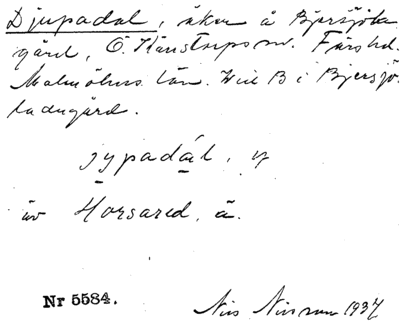 Djupadal, åker å Bjersjöla-
gård, Ö. Kärstorps sn. Färs hd.
Malmöhus län. Wid B i Bjersjö-
ladugård.
jypadál, y
äv Horsared, ä.
Nr 5584.
Nils Nilsson 1937